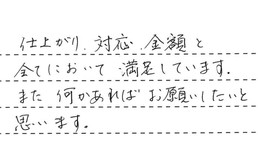 仕上がり、対応、金額と
全てにおいて 満足しています。
また 何かあれば お願いしたいと
思います。